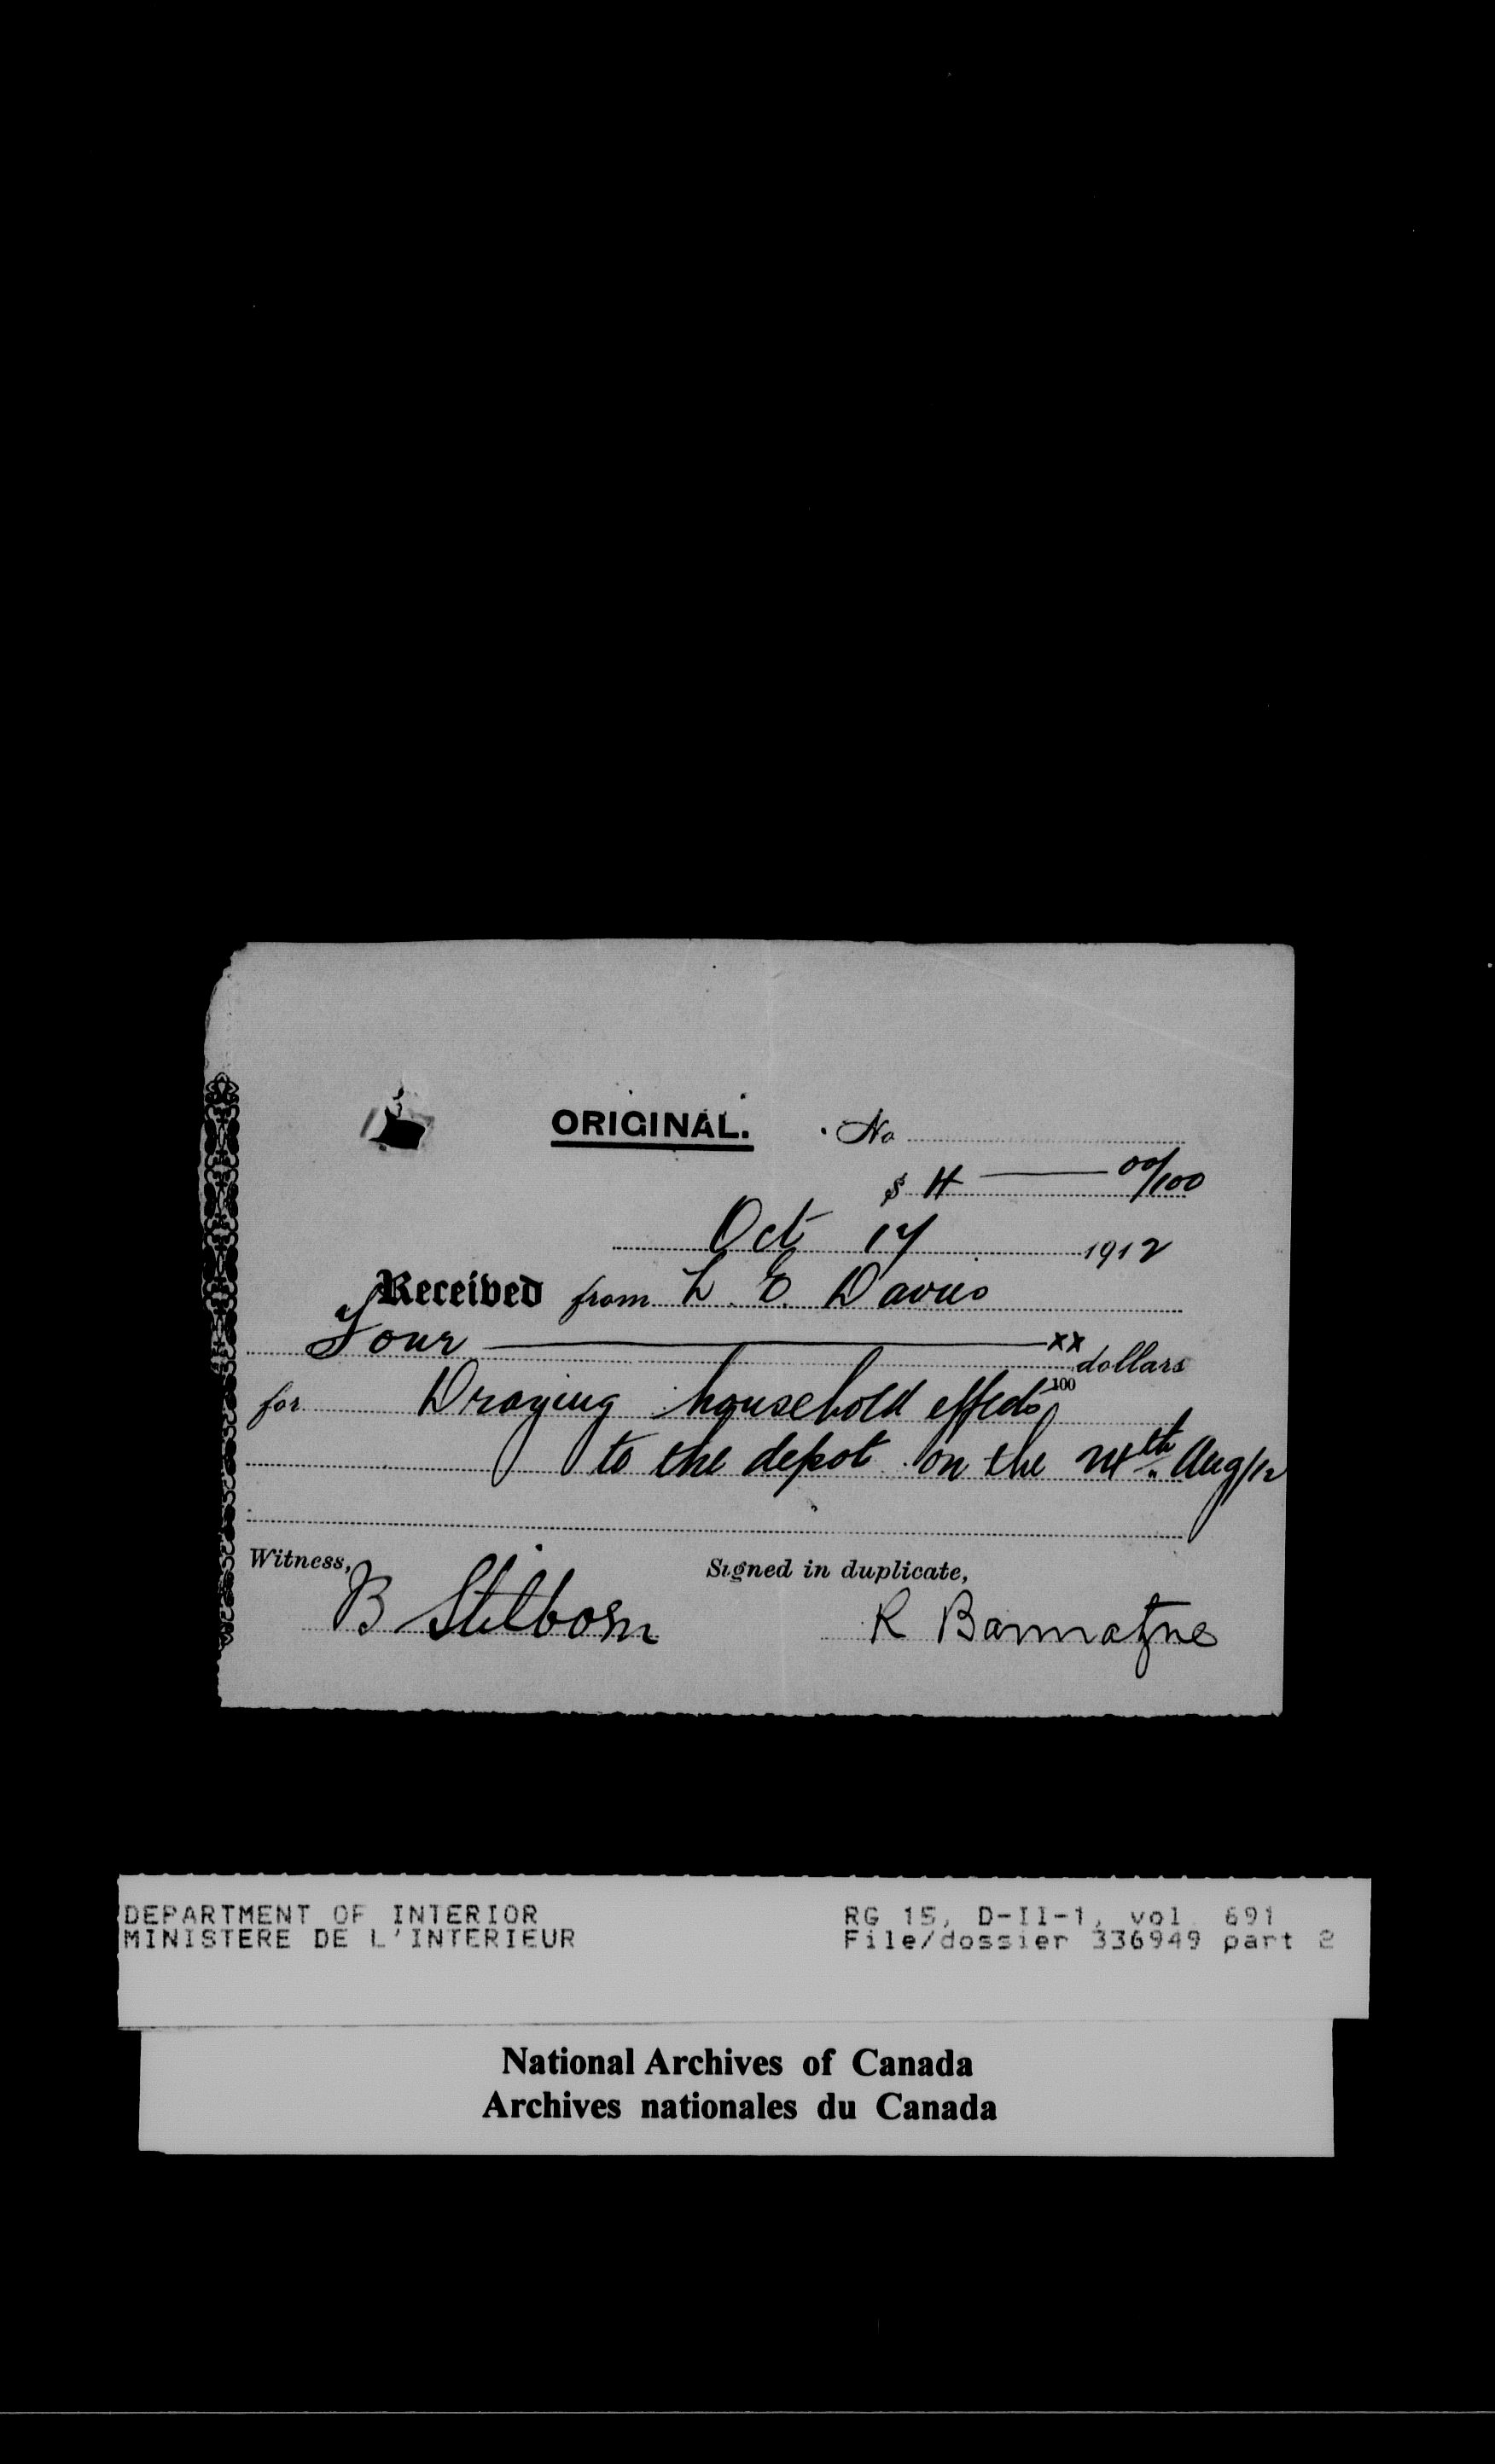 ORIGINAL. No
$ 4 — 00/100
Oct 17 1912
Received from L. E. Davies
Four — xx/100 dollars
for Draying household effects
to the depot on the 24th. Aug/12
Witness, Signed in duplicate,
B Stilborn R Bannatyne
DEPARTMENT OF INTERIOR RG 15, D-II-1, vol. 691
MINISTERE DE L'INTERIEUR File/dossier 336949 part 2
National Archives of Canada
Archives nationales du Canada